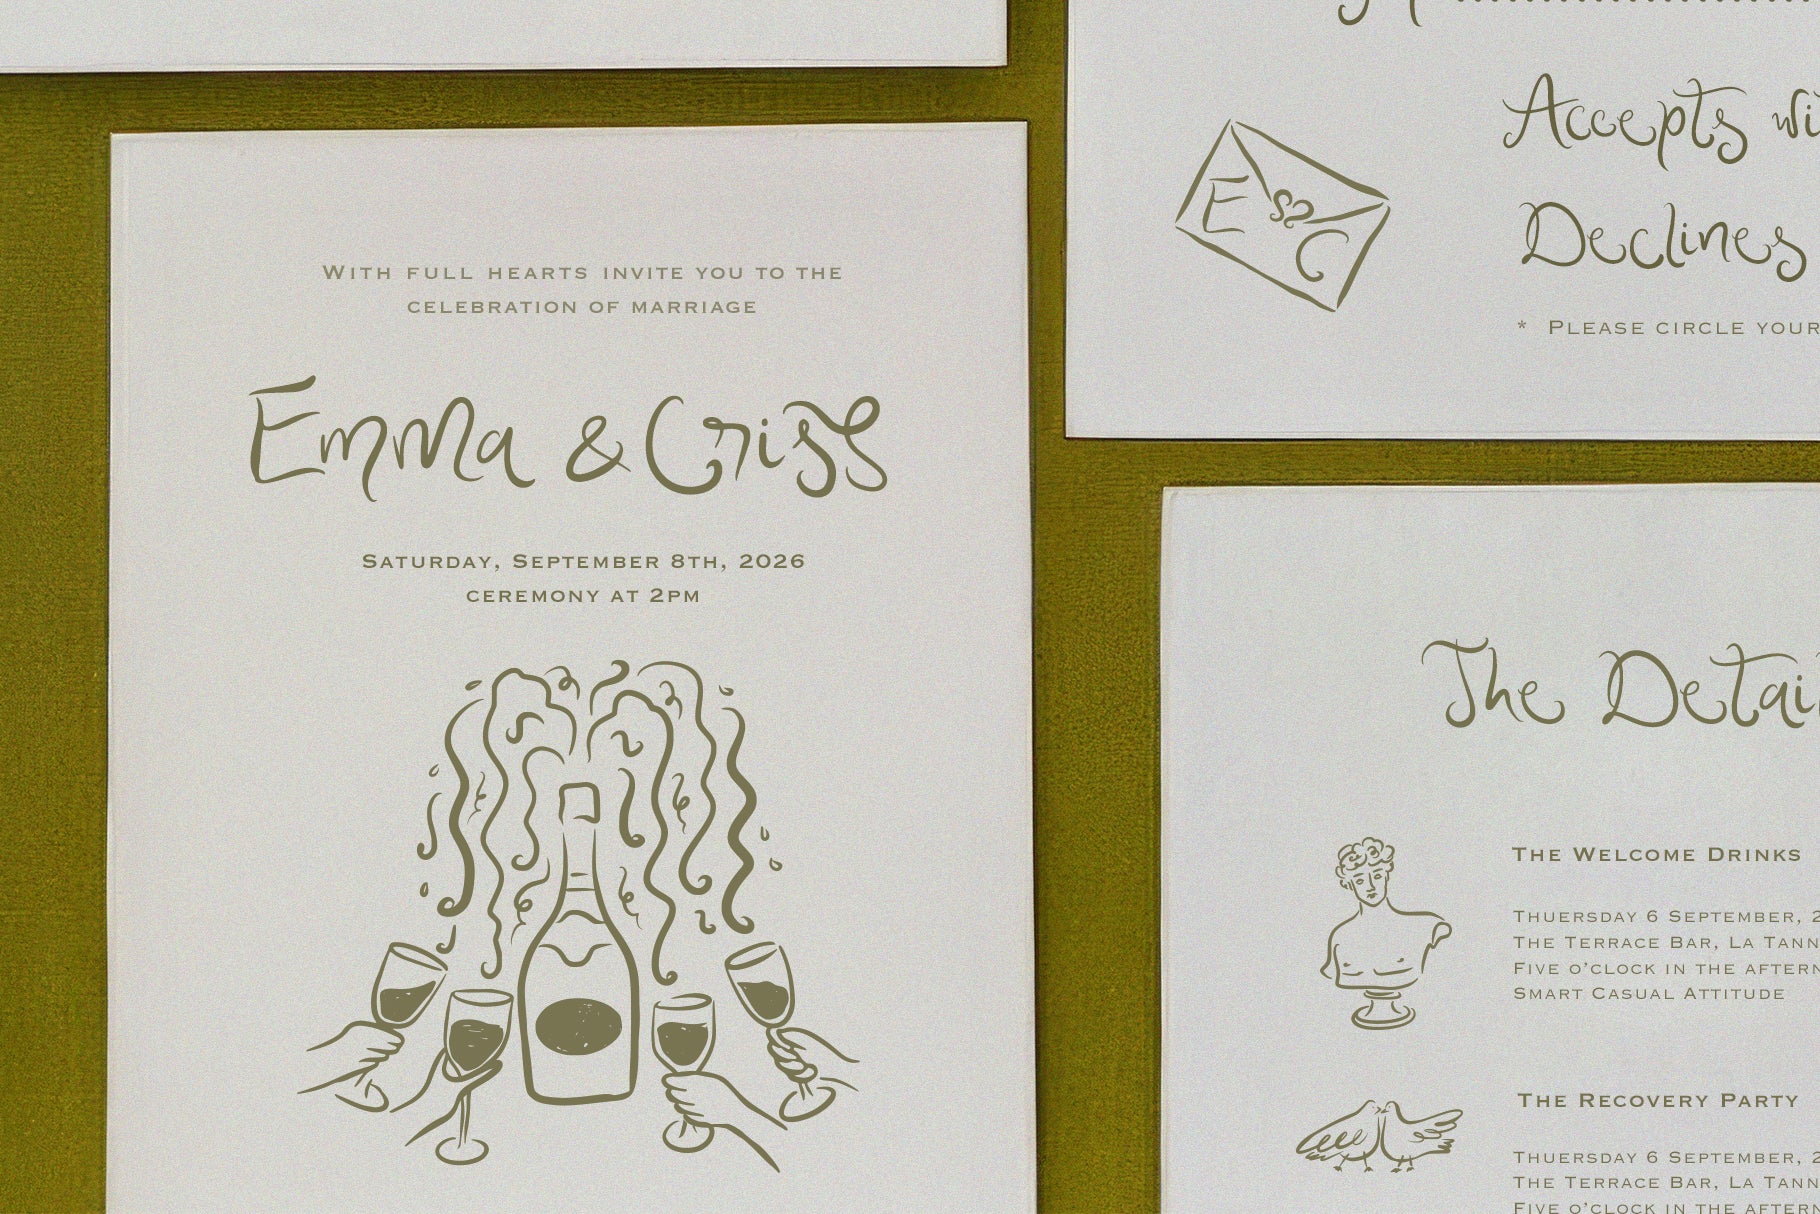 With full hearts invite you to the
celebration of marriage
Emma & Criss
Saturday, September 8th, 2026
ceremony at 2pm
Accepts
Declines
* Please circle your
E & C
The
The Welcome Drinks
Thuersday 6 September,
The Terrace Bar, La
Five o'clock in the
Smart Casual Attitude
The Recovery Party
Thuersday 6 September,
The Terrace Bar, La
Five o'clock in the